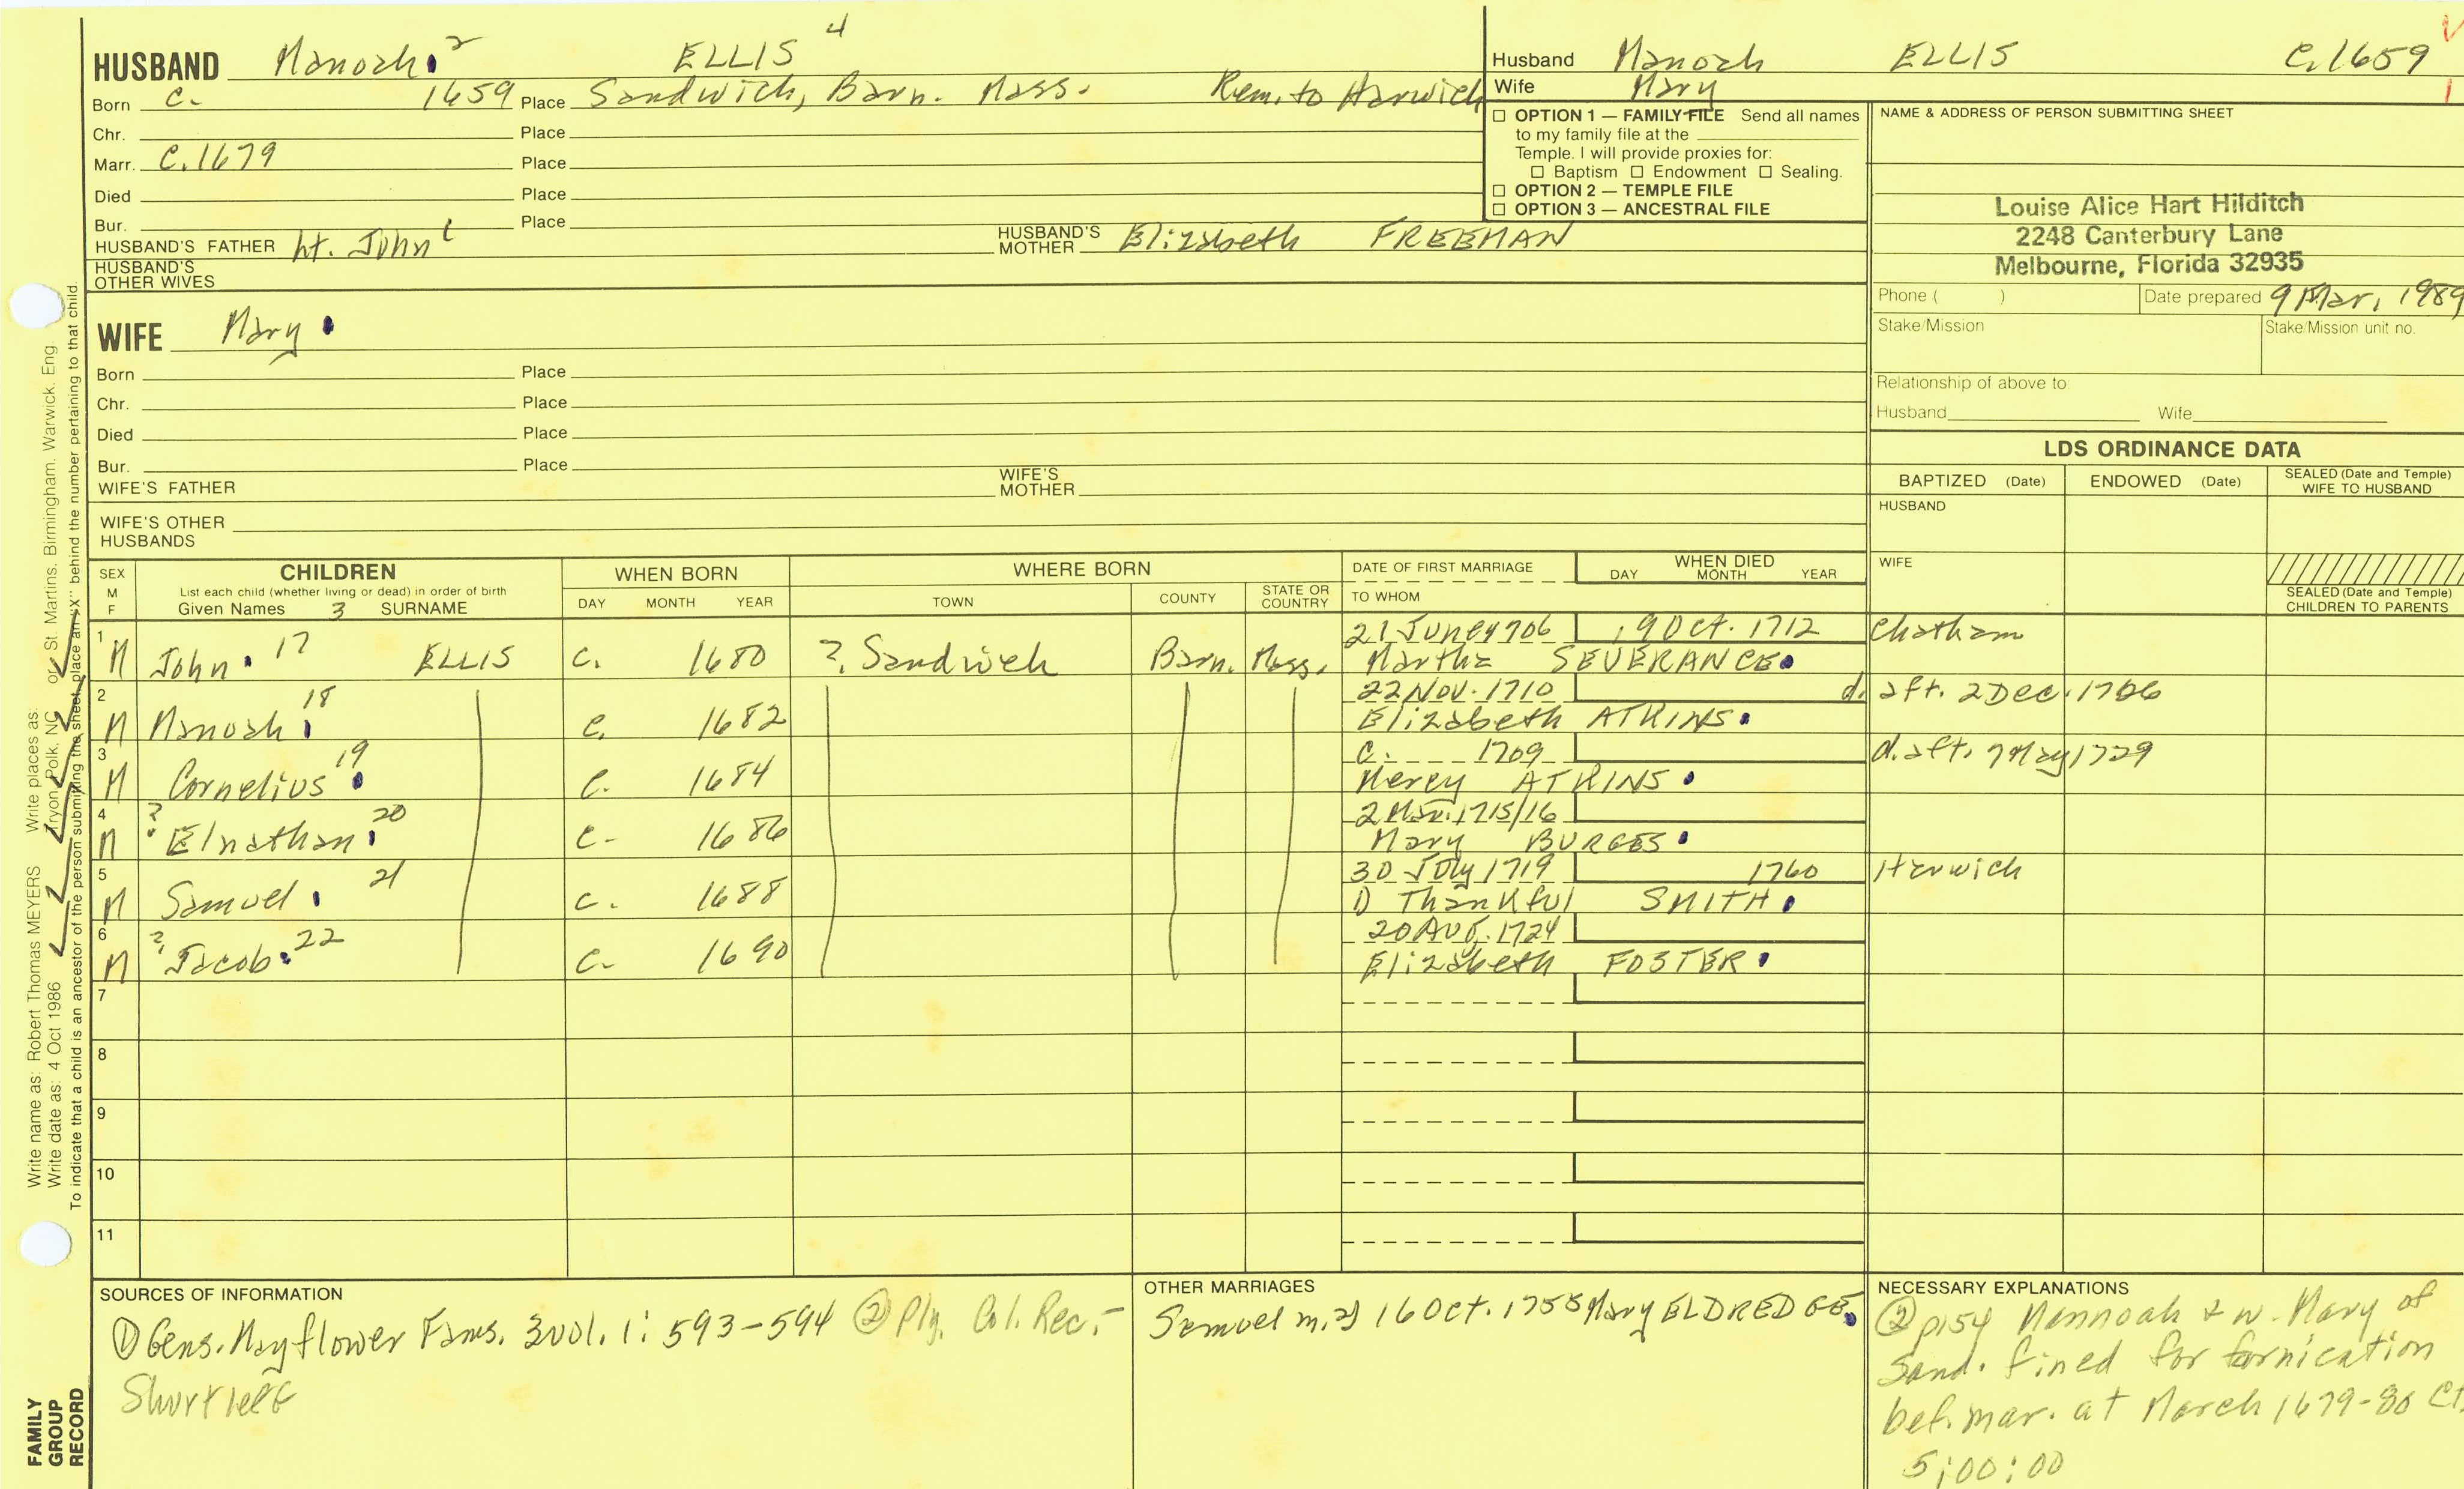 HUSBAND Manoah 2 ELLIS 4
Born c. 1659 Place Sandwich, Barn. Mass. Rem. to Harwich
Chr. Place
Marr. C. 1679 Place
Died Place
Bur. Place
HUSBAND'S FATHER Lt. John HUSBAND'S MOTHER Elizabeth FREEMAN
HUSBAND'S OTHER WIVES
WIFE Mary
Born Place
Chr. Place
Died Place
Bur. Place
WIFE'S FATHER WIFE'S MOTHER
WIFE'S OTHER HUSBANDS
Husband Manoah ELLIS C. 1659
Wife Mary
OPTION 1 — FAMILY FILE Send all names
to my family file at the
Temple. I will provide proxies for:
Baptism Endowment Sealing.
OPTION 2 — TEMPLE FILE
OPTION 3 — ANCESTRAL FILE
NAME & ADDRESS OF PERSON SUBMITTING SHEET
Louise Alice Hart Hilditch
2248 Canterbury Lane
Melbourne, Florida 32935
Phone ( ) Date prepared 9 Mar, 1989
Stake/Mission Stake/Mission unit no.
Relationship of above to
Husband Wife
LDS ORDINANCE DATA
BAPTIZED (Date) ENDOWED (Date) SEALED (Date and Temple) WIFE TO HUSBAND
HUSBAND
WIFE
SEALED (Date and Temple) CHILDREN TO PARENTS
SEX M F CHILDREN WHEN BORN WHERE BORN DATE OF FIRST MARRIAGE WHEN DIED
List each child (whether living or dead) in order of birth
Given Names 3 SURNAME DAY MONTH YEAR TOWN COUNTY STATE OR COUNTRY TO WHOM DAY MONTH YEAR
1 M John 17 ELLIS c. 1680 ? Sandwich Barn. Mass. 21 June 1706 19 Oct. 1712 Chatham
Martha SEVERANCE
2 M Manoah 18 c. 1682 22 Nov. 1710 d. aft. 2 Dec. 1766
Elizabeth ATKINS
3 M Cornelius 19 c. 1684 C. 1709 d. aft. 7 May 1729
Mercy ATKINS
4 M ? Elnathan 20 c. 1686 2 Mar. 1715/16
Mary BURGES
5 M Samuel 21 c. 1688 30 July 1719 1760 Harwich
1) Thankful SMITH
6 M ? Jacob 22 c. 1690 20 Aug. 1724
Elizabeth FOSTER
7
8
9
10
11
SOURCES OF INFORMATION
① Gens. Mayflower Fams. 3 vol. 1: 593-594 ② Ply. Col. Rec.-
Shurtleff
OTHER MARRIAGES
Samuel m. 2) 16 Oct. 1755 Mary ELDREDGE
NECESSARY EXPLANATIONS
② p154 Mannoah & w. Mary of
Sand. fined for fornication
bef. mar. at March 1679-80 Ct.
5:00:00
Write name as: Robert Thomas MEYERS Write places as: Tryon, Polk, NC or St. Martins, Birmingham, Warwick, Eng
Write date as: 4 Oct 1986
To indicate that a child is an ancestor of the person submitting the sheet, place an "X" behind the number pertaining to that child.
FAMILY
GROUP
RECORD